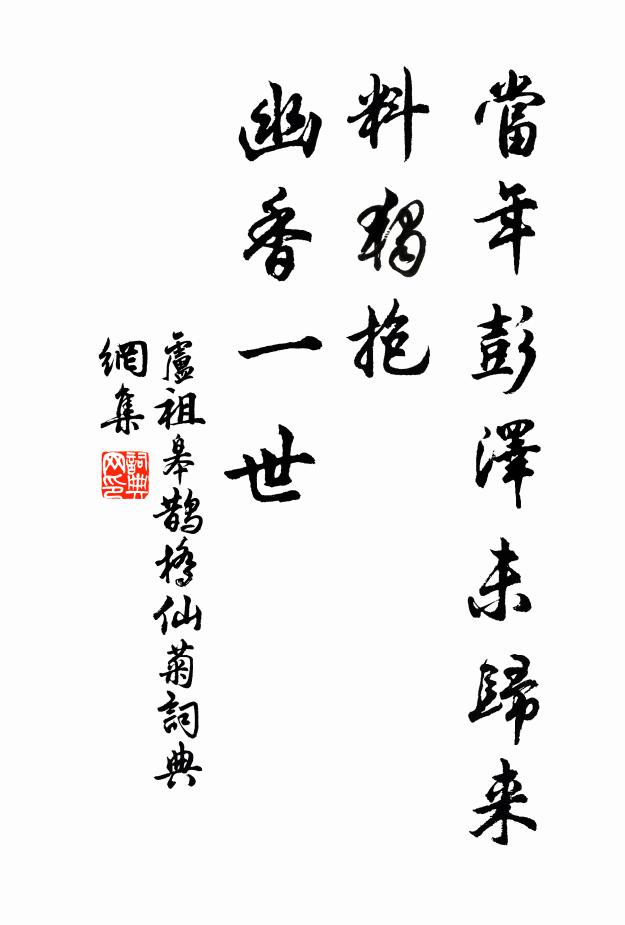 當年彭澤未歸来
料獨抱
幽香一世
盧祖皋鵲橋仙菊詞典
網集
詞典
网印